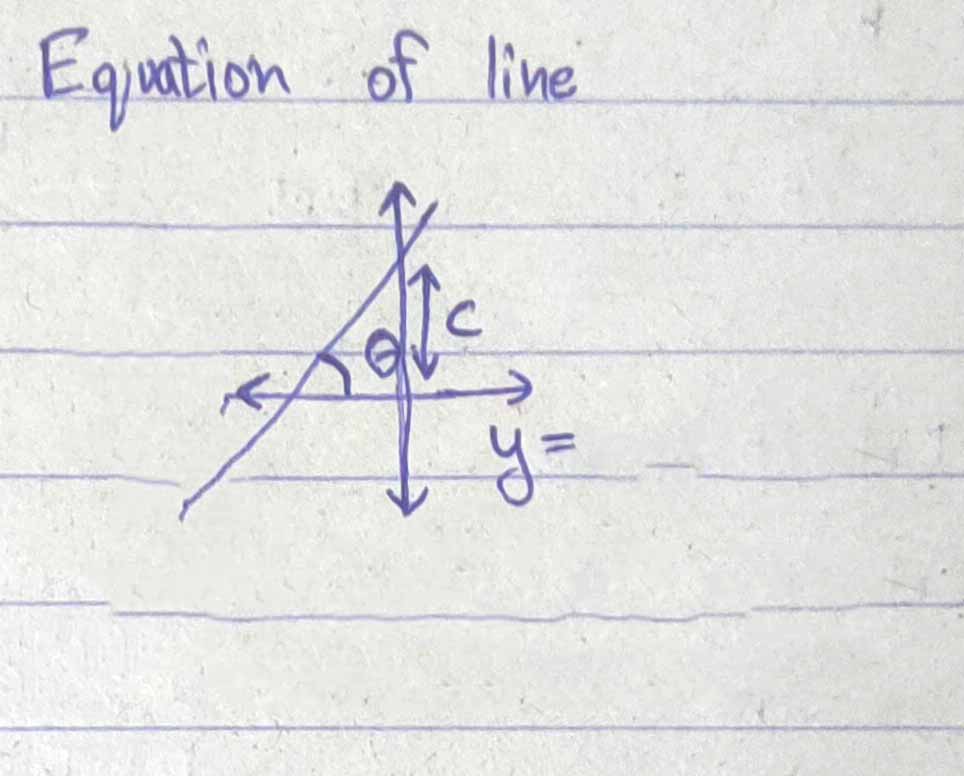 Equation of line
c
θ
y =